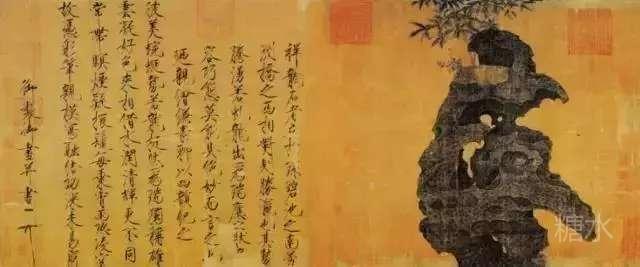 祥龍石者立於環碧池之南芳
洲橋之西相對則勝瀛也其勢
騰湧若虬龍出為瑞應之狀奇
容巧態莫能具絕妙而言之也
廼親繪縑素聊以四韻紀之
彼美蜿蜒勢若龍挺然為瑞獨稱雄
雲凝好色來相借水潤清輝更不同
常帶暝煙疑振鬣每乘宵雨恐凌空
故憑彩筆親模寫融結功深未易窮
御製御畫并書
糖水